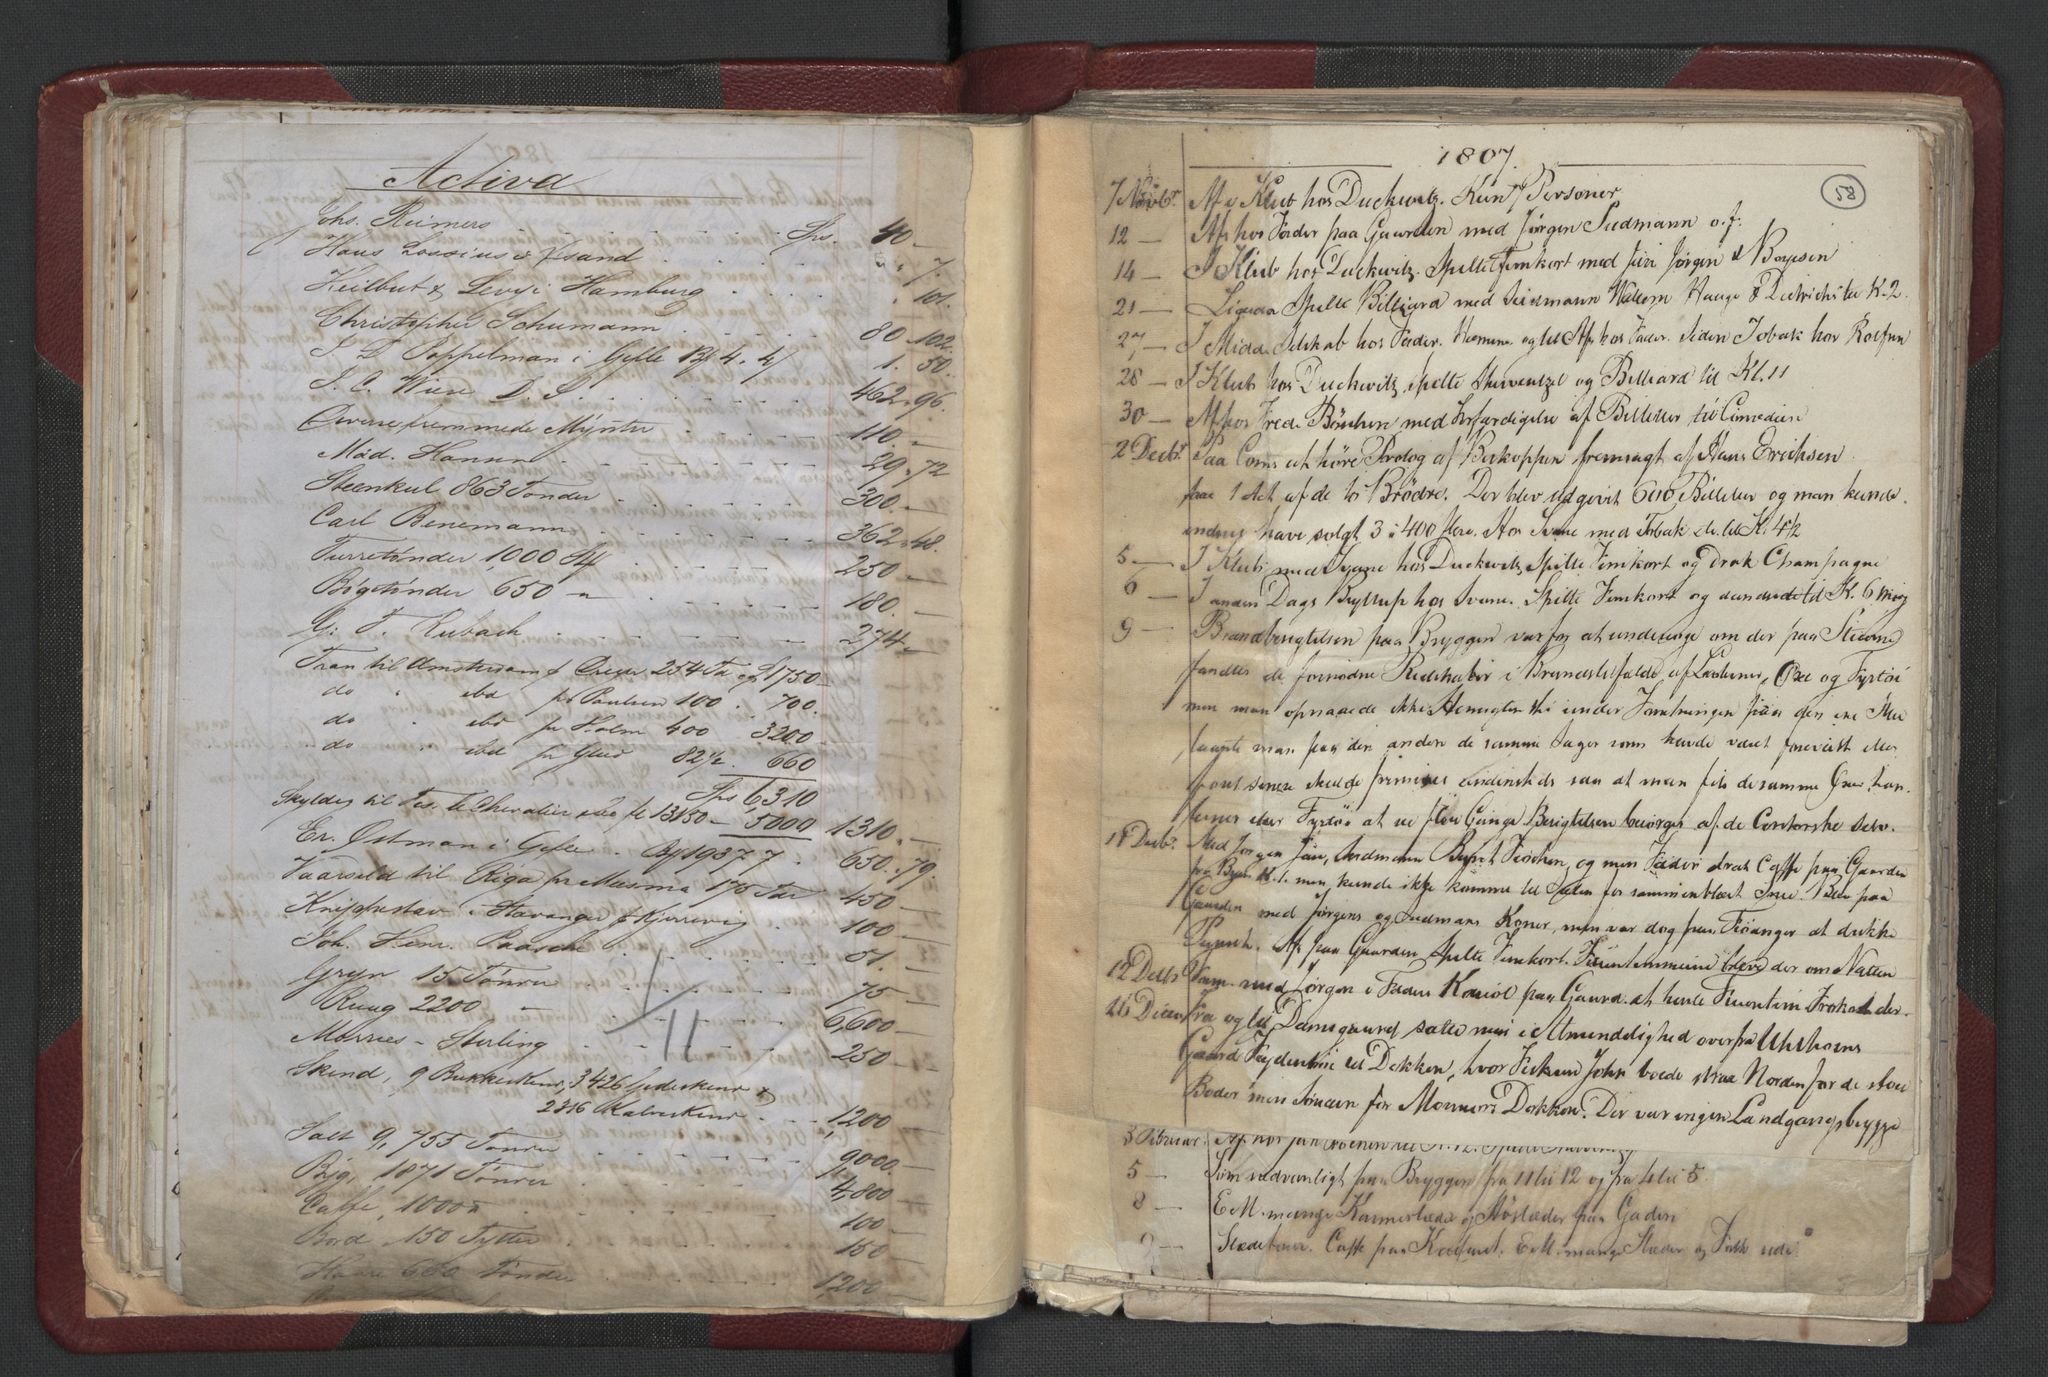 Activa
Johs. Reimers . . . Sps. 40 —
Hans Lossius i Xsand . . . " 7.
Keilbut & Levy i Hamburg . . . " 101.
Christopher Schumann . . . 80. 102
J. D. Poppelman i Gefle Bf 4. 4/ 1. 50.
J. C. Wiese D. S. . . . 462. 96.
Diverse fremmede Mynter . . . 110. —
Mad. Hansen . . . 29. 72
Steenkul 863 Tønder . . . 300. —
Carl Benemann . . . 362. 48.
Furretønder 1,000 . . . 250 —
Bøgetønder 650 — 180. —
G. F. Rubach . . . 274 —
Tran til Amsterdam f Creger 254 Td 1750 —
do " ibd pr Poulsen 100 . 700.
do " ibd pr Holm 400 3200 —
do " ibd pr Glud 82½. 660
Sps 6,310
Skyldes til fl 13,150 — 5000 1310. —
Er. Östman i Gefle . 1937 7 . 650. 79
Vaarsild til Riga pr Masma 175 Tdr 450 —
Knipperstav i Stavanger & Kjerrevig . 100 —
Joh. Hinr. Paasche . . . 51. —
Gryn 15 Tønder . . . 75 —
Rug 2200 — . . . 6,600 —
Morries — Sterling . . . 250 —
Skind, 9 Bukkeskind, 3426 Gedeskind &
2316 Kalveskind . . . 1,200 —
Salt 9,755 Tønder . . . 9000. —
Byg, 1871 Tønder . . . 4,800 —
Caffe, 1000 . . . 100 —
Bord 150 Tylter . . . 150 —
600 Tønder . . . 1200 —
1807.
58
7 Novbr. Af i Klub hos Duckwitz. Kun 7 Personer
12 — Af hos Fader paa Gaarden med Jørgen Sudmann o. f.
14 — I Klub hos Duckwitz. Spilte Femkort med Jørgen & Boyesen
21 — Ligesaa Spilte Billiard med Sudmann Willem Hauge & Diedrichs til K. 2
27, — I Midd. Selskab hos Fader. Hemme og til Af hos Fader. Siden Tobak hos Rolfsen
28 — I Klub hos Duckwitz, spilte Skervenzel og Billiard til Kl. 11
30 — Af hos Fred. Böschen med Forfærdigelse af Billetter til Comedien
2 Decbr. Paa Coms at høre Prolog af Biskoppen fremsagt af Hans Erichsen
før 1 Act af de to Brødre. Der blev udgivet 600 Billetter og man kunde
endnu have solgt 3 à 400 flere. Hos Svane med Tobak etc til K. 4½
5 — I Klub med Svane hos Duckwitz Spilte Femkort og drak Champagne
6 — I anden Dags Bryllup hos Svane. Spilte Femkort og dandsede til K. 6 mrg
9 — Brandbesigtelsen paa Bryggen var for at undersøge om der paa Stuerne
fandtes de fornødne Redskaber i Brandstilfælde af Lanterner, Øxe og Fyrtøi
men man opnaaede ikke Hensigten thi under Forretningen paa den ene Stue
laante man paa den anden de samme Sager som havde været foreviist eller
først senere skulde fremvises andensteds saa at man fik de samme Øxer, Lan-
terner eller Fyrtøi at see flere Gange Besigtelsen besørges af de Contorske selv.
11 Decbr. Med Jørgen, Fru, Sudmann, Berent Fröchen, og min Fader drak Caffe paa Gaarden
fra Byen K. 1. men kunde ikke komme til Søen for sammenblæst Snee. Blev paa
Gaarden med Jørgens og Sudmans Koner, men var dog paa Fiøsanger at drikke
Punsch. Af paa Gaarden spilte Femkort. Fruentimmerne bleve der om Natten
12 Decbr Kom med Jørgen i Faders Kariol paa Gaard. at hente Fruentim. Frokost der.
26 Decem fra og til Damsgaard satte mig i Almindelighed over fra Uhlhorns
Gaard Feydenstrie til Dokken, hvor Fisker John boede strax Norden for de store
Boder men Sønden for Monsens Dokken. Der var ingen Landgangsbrygge
3 Februar.
5 — Som sædvanligt paa Bryggen fra 11 til 12 og fra 4 til 5.
8 — E. M. mange Kannestæder og Høslæder paa Gaden
9 — Slædeture. Caffe paa Kalfaret. E M. mange Slæder og Folk ude.